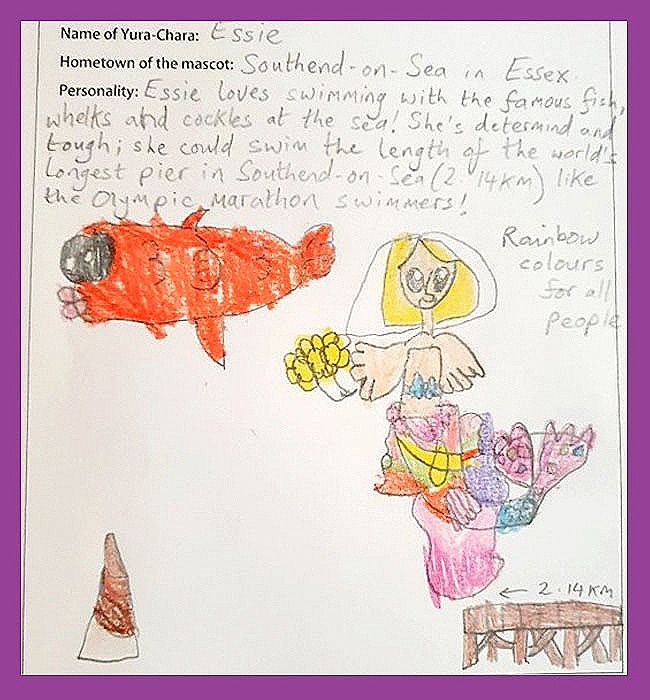 Name of Yura-Chara: Essie
Hometown of the mascot: Southend-on-Sea in Essex.
Personality: Essie loves swimming with the famous fish,
whelks and cockles at the sea! She's determind and
tough; she could swim the length of the world's
longest pier in Southend-on-Sea (2.14KM) like
the Olympic Marathon swimmers!
Rainbow
colours
for all
people
← 2.14KM